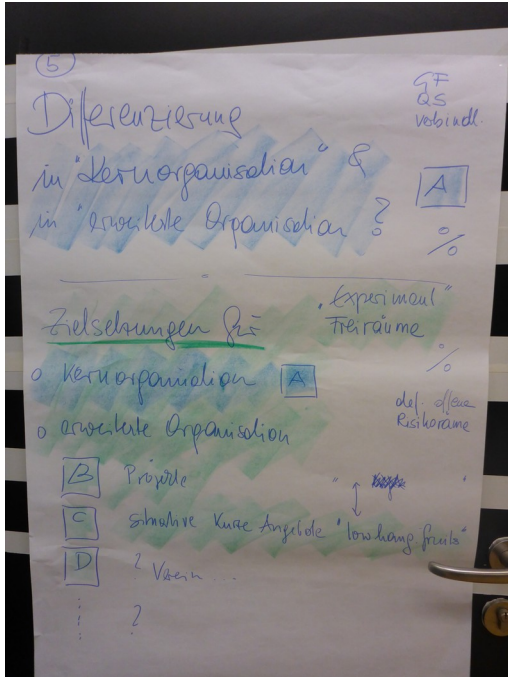 5
GF
QS
verbindl.
Differenzierung
in "Kernorganisation" &
in "erweiterte Organisation ?
A
%
Zielsetzungen für
"Experiment"
Freiräume
%
o Kernorganisation A
def. offene
Risikoräume
o erweiterte Organisation
B Projekte
C situative Kurze Angebote "low hang. fruits"
D ? Verein ...
?